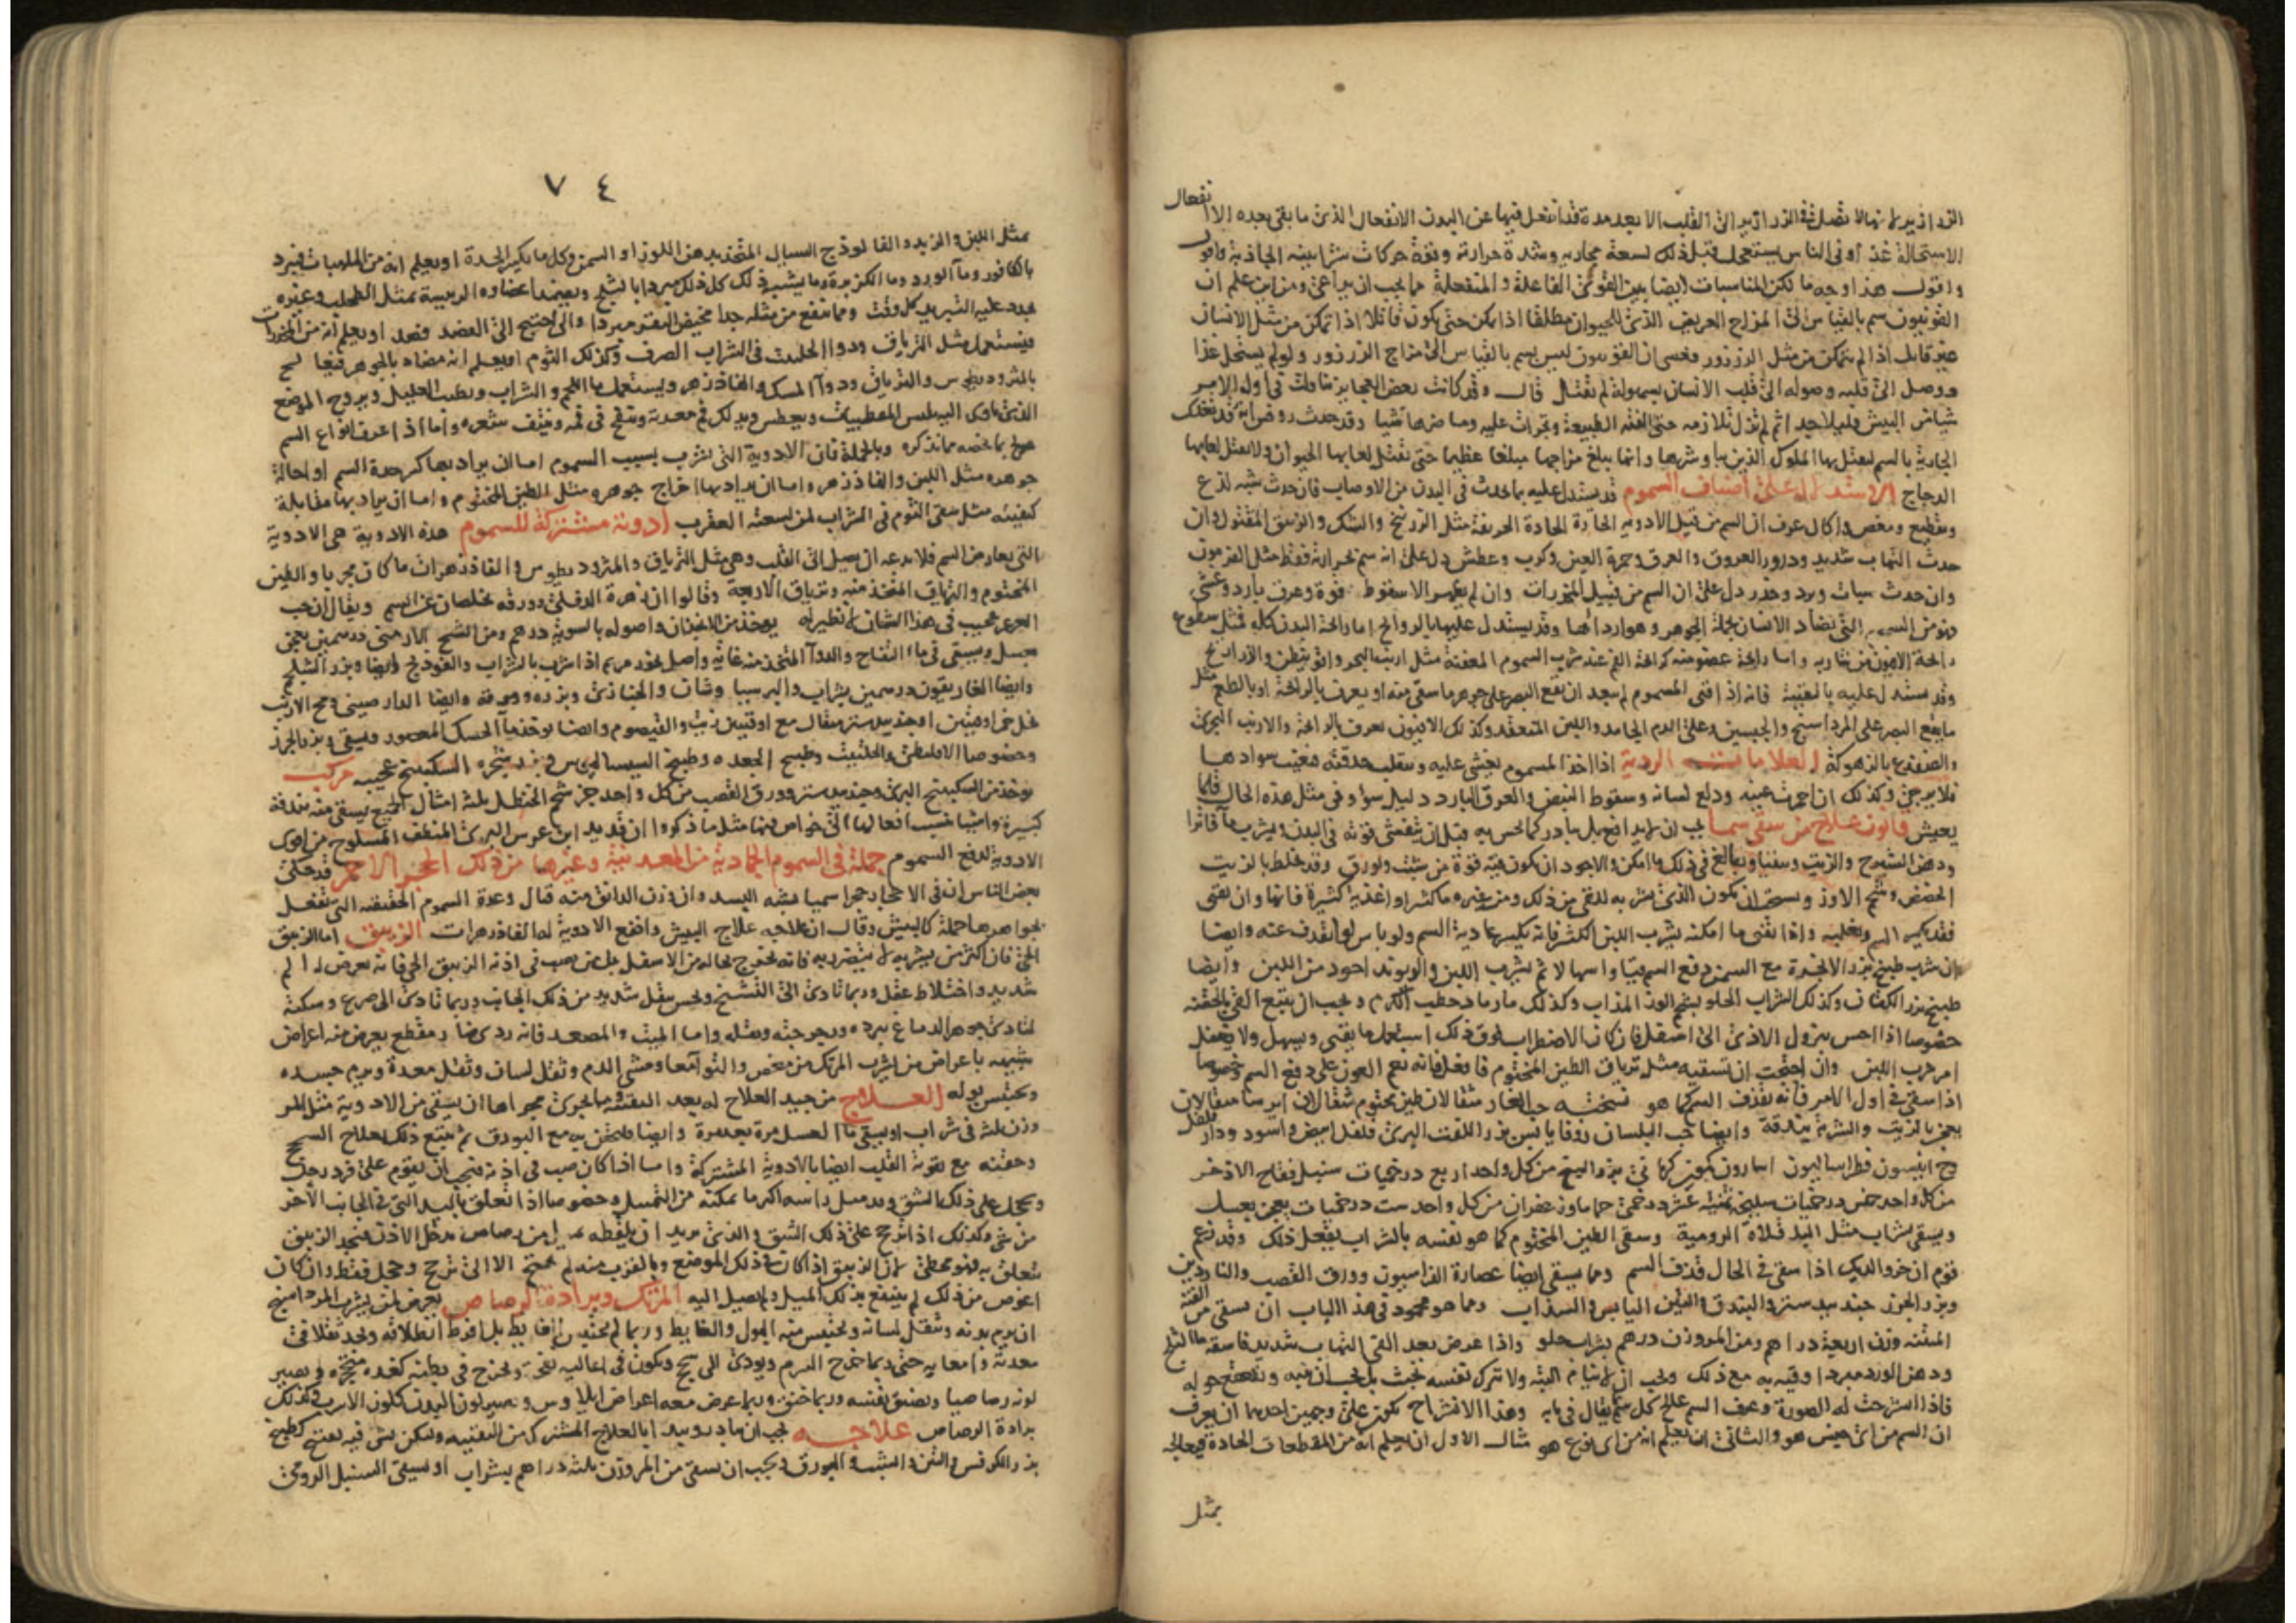 نفعال
الاستحالة غذاؤ فى الناس يستعجل قبل ذلك لسعة مجاريه وشدة حرارته وقوة حركات شرايينه الجاذبة واقول
واقول هذا وجه ما لكن المناسبات ايضا بين القوتين الفاعلة والمنفعلة مما يجب ان يراعى ومن اين علم ان
القونيون سم بالقياس الى المزاج العريض الذى للحيوان مطلقا اذا تمكن حتى يكون قاتلا اذا تمكن من مثل الانسان
غير قاتل اذا لم يتمكن من مثل الزرزور وعسى ان القونيون ليس بسم بالقياس الى مزاج الزرزور ولو لم يستحل غذا
ووصل الى قلبه وصوله الى قلب الانسان بسهولة لم يقتل قال وقد كانت بعض العجايز تناولت فى اول الامر
شيا من البيش قليلا جدا ثم لم تزل تلازمه حتى الفته الطبيعة وتجرات عليه وما ضرها شيا وقد حدث روفس انه قد تغذى
الجارية بالسم ليقتل بها الملوك الذين يباشرونها وانما يبلغ مزاجها مبلغا عظيما حتى يقتل لعابها الحيوان ولا يقبل لعابها
الدجاج الاستدلال على اصناف السموم قد يستدل عليه بما يحدث فى البدن من الاوصاب فان حدث شبه لذع
وتقطيع ومغص واكال عرف ان السم من قبيل الادويه الحارة الحادة الحريفة مثل الزرنيخ والشك والزيبق المقتول وان
حدث التهاب شديد ودرور العروق والعرق وحمرة العين وكرب وعطش دل على انه سم بحرارته فقط مثل الفربيون
وان حدث سبات وبرد وخدر دل على ان السم من قبيل المخدرات وان لم يظهر الا سقوط قوة وعرق بارد وغشى
فهو من السموم التى تضاد الانسان بجملة الجوهر وهو اردأها وقد يستدل عليها بالروايح اما رائحة البدن كله فمثل سطوع
رائحة الافيون من شاربه واما رائحة عضو منه كرائحة الفم عند شرب السموم المعفنة مثل ارنب البحر
وقد يستدل عليه بالتقيئة فانه اذا قى المسموم لم يبعد ان يقع البصر على جوهر ما سقى منه او يعرف بالرائحة او بالطعم مثل
ما يقع البصر على المرداسنج والجبسين وعلى الدم الجامد واللبن المتعقد وكذلك الافيون يعرف بالرائحة والارنب البحرى
والضفدع بالزهوكة العلامات الردية اذا اخذ المسموم يغشى عليه وينقلب حدقته فيغيب سوادها
فلا يرجى وكذلك ان احمرت عينه ودلع لسانه وسقوط النبض والعرق البارد دليل سوء وفى مثل هذه الحال قلما
يعيش قانون علاج من سقى سما يجب ان لا يدافع بل يبادر كما يحس به قبل ان تتفشى قوته فى البدن فيشرب ماء فاترا
ودهن الشيرج والزيت ويتقيا ويبالغ فى ذلك ما امكن والاجود ان يكون فيه قوة من شبث وبورق وقد يخلط بالزيت
وشحم الاوز ويستحب ان يكون الذى يشربه للقى من ذلك ومن غيره ماء كثيرا واغذية كثيرة فانها وان تقى
فقد تكسر السم وتغلبه واذا تقيى ما امكنه يشرب اللبن الكثير فانه يكسر عادية السم ولو باس لو انقذف عنه وايضا
ان شرب طبيخ بزر الانجرة مع السمن دفع السم قيا واسهالا ثم يشرب اللبن والزبد اجود من اللبن وايضا
طبيخ بزر الكتان وكذلك الشراب الحلو بشحم الاوز المذاب وكذلك ماء رماد حطب الكرم ويجب ان يتبع القى بالحقنه
خصوصا اذا احس بنزول الاذى الى اسفل فان كان الاضطراب فوق ذلك استعمل ما يقيى ويسهل ولا يغفل
امر شرب اللبن وان احتجت ان تسقيه مثل ترياق الطين المختوم فافعل فانه نعم العون على دفع السم خصوصا
اذا سقى فى اول الامر فانه يقذف السم كما هو نسخته حب الغار مثقالان طين مختوم مثقالان ايرسا مثقالان
يعجن بالزيت والشربة بندقة وايضا حب البلسان بزر اللفت البرى فلفل ابيض واسود ودار فلفل
بزر البنج من كل واحد اربع درخميات سنبل فقاح الاذخر
من كل واحد خمس درخميات سليخة ثمنية عشر درخمى حماما وزعفران من كل واحد ست درخميات يعجن بعسل
ويسقى بشراب مثل الباقلاة الرومية وسقى الطين المختوم كما هو نفسه بالشراب يفعل ذلك وقد زعم
قوم ان خرو الديك اذا سقى فى الحال قذف السم ومما يسقى ايضا عصارة الفراسيون وورق القصب والناردين
وبزر الجزر جندبيدستر والبندق والتين اليابس والسذاب ومما هو محمود فى هذا الباب ان يسقى من القنة
المنقية وزن اربعة دراهم ومن المر وزن درهم بشراب حلو واذا عرض بعد القى التهاب شديد فاسقه ماء الثلج
ودهن الورد مبردا وقيه به مع ذلك ويجب ان لا ينام البتة ولا تترك نفسه تخبث بل يجب ان ينبه ويصيح حوله
فاذا انشرحت له الصورة وعرف السم عالج كل سم بما يقال فى بابه وهذا الانشراح يكون على وجهين احدهما ان يعرف
ان السم من اى جنس هو والثانى ان يعلم انه من اى نوع هو مثال الاول ان يعلم انه من المقطعات الحادة فيعالجه
بمثل
٧٤
بمثل اللبن والزبد والفالوذج السيال المتخذ بدهن اللوز او السمن وكل ما يكسر الحدة او يعلم انه من الملهبات فيبرد
بالكافور وماء الورد وماء الكزبرة وما يشبه ذلك كل ذلك مبردا بالثلج ويضمد اعضاوه الرييسة بمثل الطحلب وغيره
يجدد عليه التبريد كل وقت ومما ينتفع من مثله جدا مخيض البقر مبردا والى احتيج الى الفصد فصد او يعلم انه من المخدرات
فيستعمل مثل الترياق ودواء الحلتيت فى الشراب الصرف وكذلك الثوم او يعلم انه مضاد بالجوهر
بالمثروديطوس والترياق ودواء المسك والفاذزهر ويستعمل ماء اللحم والشراب ويطيب العليل ويروح الموضع
الذى ياوى اليه ويلبس المطيبات ويعطس ويدلك فم معدته وينفخ فى فمه وينتف شعره واما اذا عرف انواع السم
عولج بما يخصه مما نذكره وبالجملة فان الادوية التى تشرب بسبب السموم اما ان يراد بها كسر حدة السم او احالة
جوهره مثل اللبن والفاذزهر واما ان يراد بها اخراج جوهره مثل الطين المختوم واما ان يراد بها مقابلة
كيفيته مثل سقى الثوم فى الشراب لمن لسعته العقرب ادوية مشتركة للسموم هذه الادوية هى الادوية
التى تعارض السم فلا تدعه ان يصل الى القلب وهى مثل الترياق والمثروديطوس والفاذزهرات ما كان مجربا والطين
المختوم والترياق المتخذ منه وترياق الاربعة وقالوا ان زهرة الدفلى وورقه يخلصان عن السم ويقال ان حب
العرعر عجيب فى هذا الشان لا نظير له يوخذ من وصوله بالسوية درهم ومن الشيح الارمنى درهمين يعجن
بعسل ويسقى فى ماء التفاح والدواء المتخذ من غاريقون واصل بخور مريم اذا شرب بالشراب والفودنج وايضا بزر الشلجم
وايضا الغاريقون درهمين بشراب والخبازى وبزره وورقه وايضا الدارصينى ومخ الارنب
بخل خمر اوقيتين او جندبيدستر مثقال مع اوقيتين زيت والقيصوم وايضا يوخذ ماء الحسك المعصور ويسقى وبزر الجزر
وخصوصا الاقليطى والحلتيت وطبيخ الجعده وطبيخ السيساليوس شجرة السكبينج عجيبة مركب
يوخذ من السكبينج البرى وجندبيدستر وورق القصب من كل واحد جزء شحم الحنظل ثلثة امثال الجميع يسقى منه بندقة
كبيرة واشيا نسبت افعالها الى خواص فيها مثل ما ذكروا ان قديد ابن عرس البرى المنظف المسلوخ من اقوى
الادوية لدفع السموم جملة فى السموم الجمادية من المعدنية وغيرها من ذلك الحجر الاحمر قد حكى
بعض الناس ان فى الاحجار حجرا سميا يشبه البسد وان وزن الدانق منه قال وعدة السموم الحقيقية التى تفعل
بجواهرها جملة كالبيش وقال ان علاجه علاج البيش وانفع الادوية له الفاذزهرات الزيبق اما الزيبق
الحى فان اكثر من يشربه لا يتضرر به فانه يخرج بحاله من الاسفل بل من يصب فى اذنه الزيبق الحى فانه يعرض له الم
شديد واختلاط عقل وربما تادى الى التشنج ويحس بثقل شديد من ذلك الجانب وربما تادى الى صرع وسكتة
لتاذى جوهر الدماغ ببرده ورجرجته وثقله واما الميت والمصعد فانه ردى ضار مقطع يعرض منه اعراض
شبيهه باعراض من يشرب المرتك من مغص والتواء امعا ومشى الدم وثقل لسان وثقل معدة ويرم جسده
ويحتبس بوله العلاج من جيد العلاح له بعد التقية ان يسقى من الادوية مثل المر
وزن ثلثة فى شراب او يسقى ماء العسل مرة بعد مرة وايضا فليحقن به مع البورق ثم يتبع ذلك بعلاج السحج
وحقنه مع تقوية القلب ايضا بالادوية المشتركة واما اذا كان صب فى اذنه فيجب ان يقوم على فرد رجل
ويحجل على ذلك الشق ويميل راسه اكثر ما يمكنه من التمييل وخصوصا اذا تعلق باليد التى فى الجانب الاخر
من شى وكذلك اذا ترجح على ذلك الشق والذى يريد ان يلقطه بميل من رصاص يدخل الاذن فيجد الزيبق
تعلق به فهو مخطى لان الزيبق اذا كان فى ذلك الموضع وبالقرب منه لم يحتج الا الى ترجح وحجل فقط وان كان
اغوص من ذلك لم ينتفع بذلك الميل ولم يصل اليه المرتك وبرادة الرصاص يعرض لمن يشرب المرداسنج
ان يرم بدنه ويثقل لسانه ويحتبس منه البول والغايط وربما لم يحتبس الغايط بل افرط انطلاقه ويجد ثقلا فى
معدته وامعايه حتى ربما خرج السرم ويودى الى سحج ويكون فى اعاليه نفخ ويخرج فى بطنه كغدة متحجرة ويصير
لونه رصاصيا ويضيق نفسه وربما خنق وربما عرض معه اعراض ايلاوس ويصير لون البدن كلون الاسرب وكذلك
برادة الرصاص علاجه يجب ان يبادر ويبدا بالعلاج المشترك من التقية وليكن بشى فيه تفتيح كطبيخ
بزر الكرفس والتين والشبث والبورق ويجب ان يسقى من المر وزن ثلثة دراهم بشراب او يسقى السنبل الرومى